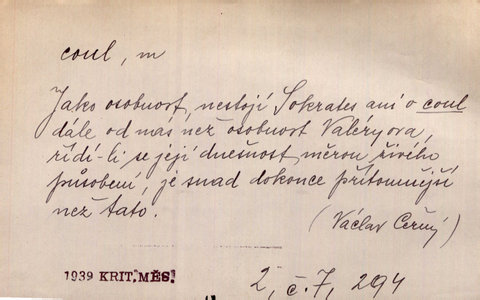 coul, m
Jako osobnost, nestojí Sokrates ani o coul
dále od nás než osobnost Valéryova,
řídí-li se její dnešnost měrou živého
působení, je snad dokonce přítomnější
než tato.
(Václav Černý)
1939 KRIT. MĚS. 2, č. 7, 294